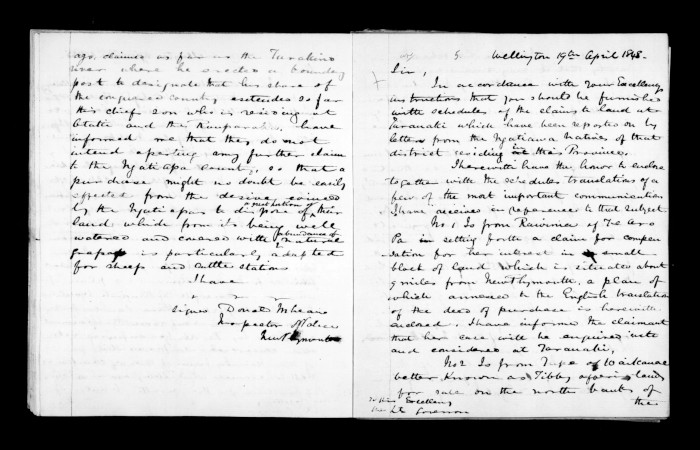 ago, claimed as far as the Turakina
river where he erected a boundary
post to designate that his share of
the conquered country extended so far
this chiefs son who is residing at
Otaki and the have
informed me that they do not
intend asserting any further claim
to the Ngatiapa country, so that a
purchase might no doubt be easily
effected from the desire evinced
by the Ngatiapas to dispose of a portion of their
land which from its being well
watered and covered with abundance of natural
grass is particularly adapted
for sheep and cattle stations
I have
signed Donald McLean
Inspector of Police
New Plymouth
Wellington 19th April 1848.
Sir,
In accordance with Your Excellency's
instructions that you should be furnished
with schedules of the claims to land at
Taranaki which have been reported on by
letters from the Ngatiawa Natives of that
district residing in this Province.
I herewith have the honor to enclose
together with the schedules translations of a
few of the most important communications
I have received in reference to that subject
No 1 Is from Rawinia of Te Aro
Pa in setting forth a claim for compen
sation for her interest in a small
block of land which is situated about
9 miles from New Plymouth, a plan of
which annexed to the English translation
of the deed of purchase is herewith
enclosed. I have informed the claimant
that her case will be enquired into
and considered at Taranaki,
No 2 Is from of Waikanae
better known as Tibby offering land
for sale on the north banks of
the
To His Excellency
the Lt Governor